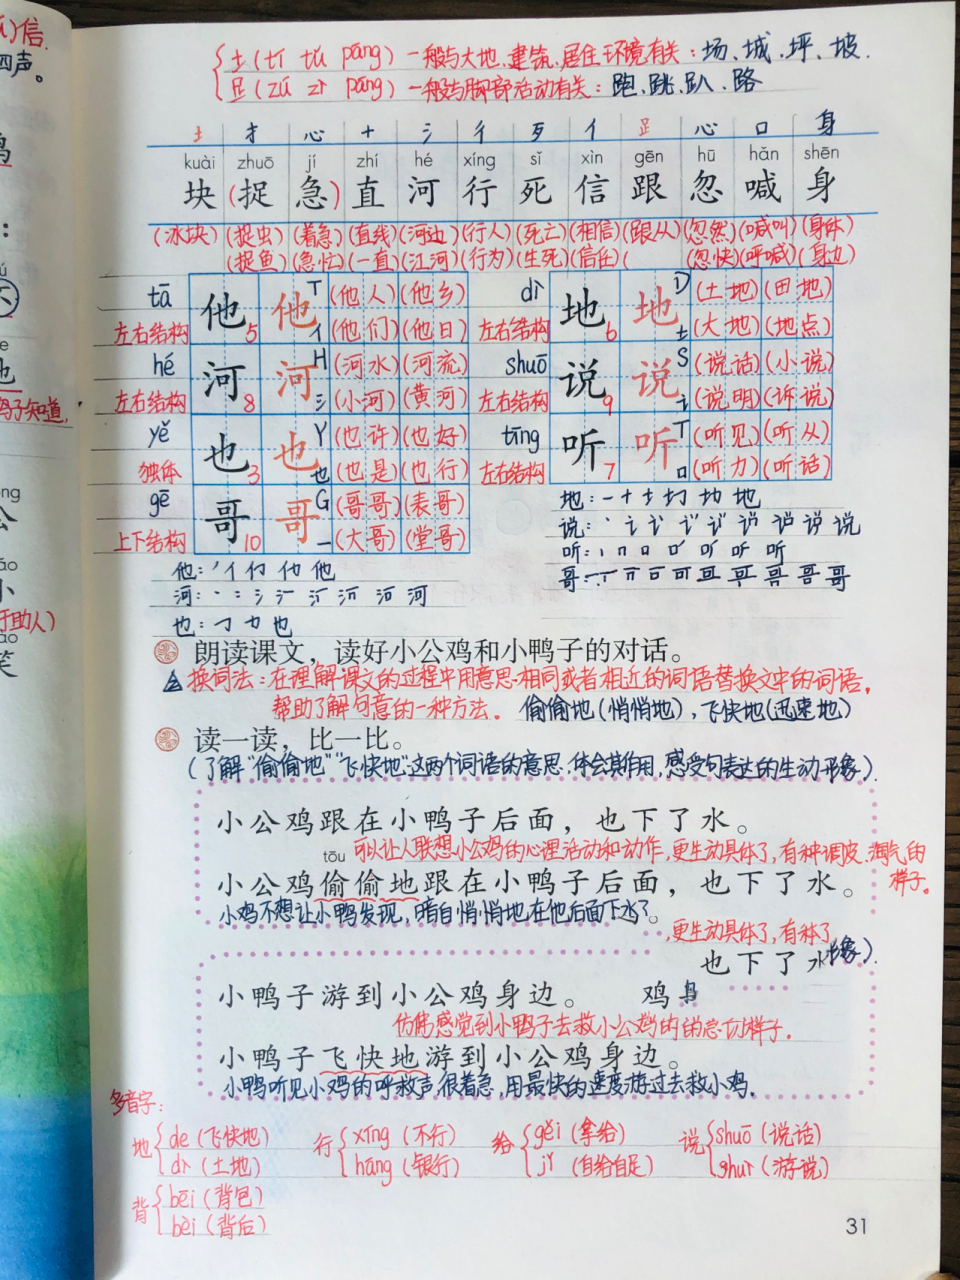 信.
四声。
土(tí tǔ páng)一般与大地、建筑、居住环境有关:场、城、坪、坡.
足(zú zì páng)一般与脚部活动有关:跑、跳、趴、路
土 扌 心 十 氵 彳 歹 亻 足 心 口 身
kuài zhuō jí zhí hé xíng sǐ xìn gēn hū hǎn shēn
块(捉 急)直 河 行 死 信 跟 忽 喊 身
(冰块)(捉虫)(着急)(直线)(河边)(行人)(死亡)(相信)(跟从)(忽然)(喊叫)(身体)
(捉鱼)(急忙)(一直)(江河)(行为)(生死)(信任)( (忽快)(呼喊)(身边)
tā 他 他 T (他人)(他乡) dì 地 地 D (土地)(田地)
左右结构 5 亻 (他们)(他日) 左右结构 6 土 (大地)(地点)
hé 河 河 H (河水)(河流) shuō 说 说 S (说话)(小说)
左右结构 8 氵 (小河)(黄河) 左右结构 9 讠 (说明)(诉说)
yě 也 也 Y (也许)(也好) tīng 听 听 T (听见)(听从)
独体 3 也 (也是)(也行) 左右结构 7 口 (听力)(听话)
gē 哥 哥 G (哥哥)(表哥)
上下结构 10 一 (大哥)(堂哥)
地:一 十 土 地
说: 说
听: 听
哥: 哥
他: 亻 他
河: 氵 河
也: 也
朗读课文,读好小公鸡和小鸭子的对话。
换词法:在理解课文的过程中用意思相同或者相近的词语替换文中的词语,
帮助了解句意的一种方法。 偷偷地(悄悄地),飞快地(迅速地)
读一读,比一比。
(了解"偷偷地""飞快地"这两个词语的意思.体会其作用,感受句表达的生动形象).
小公鸡跟在小鸭子后面,也下了水。
可以让人联想小公鸡的心理活动和动作,更生动具体了,有种调皮、淘气的
样子。
tōu
小公鸡偷偷地跟在小鸭子后面,也下了水。
小鸡不想让小鸭发现,暗自悄悄地在他后面下水了。
,更生动具体了,有种了
也下了水 形象).
小鸭子游到小公鸡身边。 鸡
仿佛感觉到小鸭子去救小公鸡的的急切样子.
小鸭子飞快地游到小公鸡身边。
小鸭听见小鸡的呼救声,很着急,用最快的速度游过去救小鸡.
多音字:
地 de(飞快地) dì(土地)
行 xíng(不行) háng(银行)
给 gěi(拿给) jǐ(自给自足)
说 shuō(说话) shuì(游说)
背 bēi(背包) bèi(背后)
31